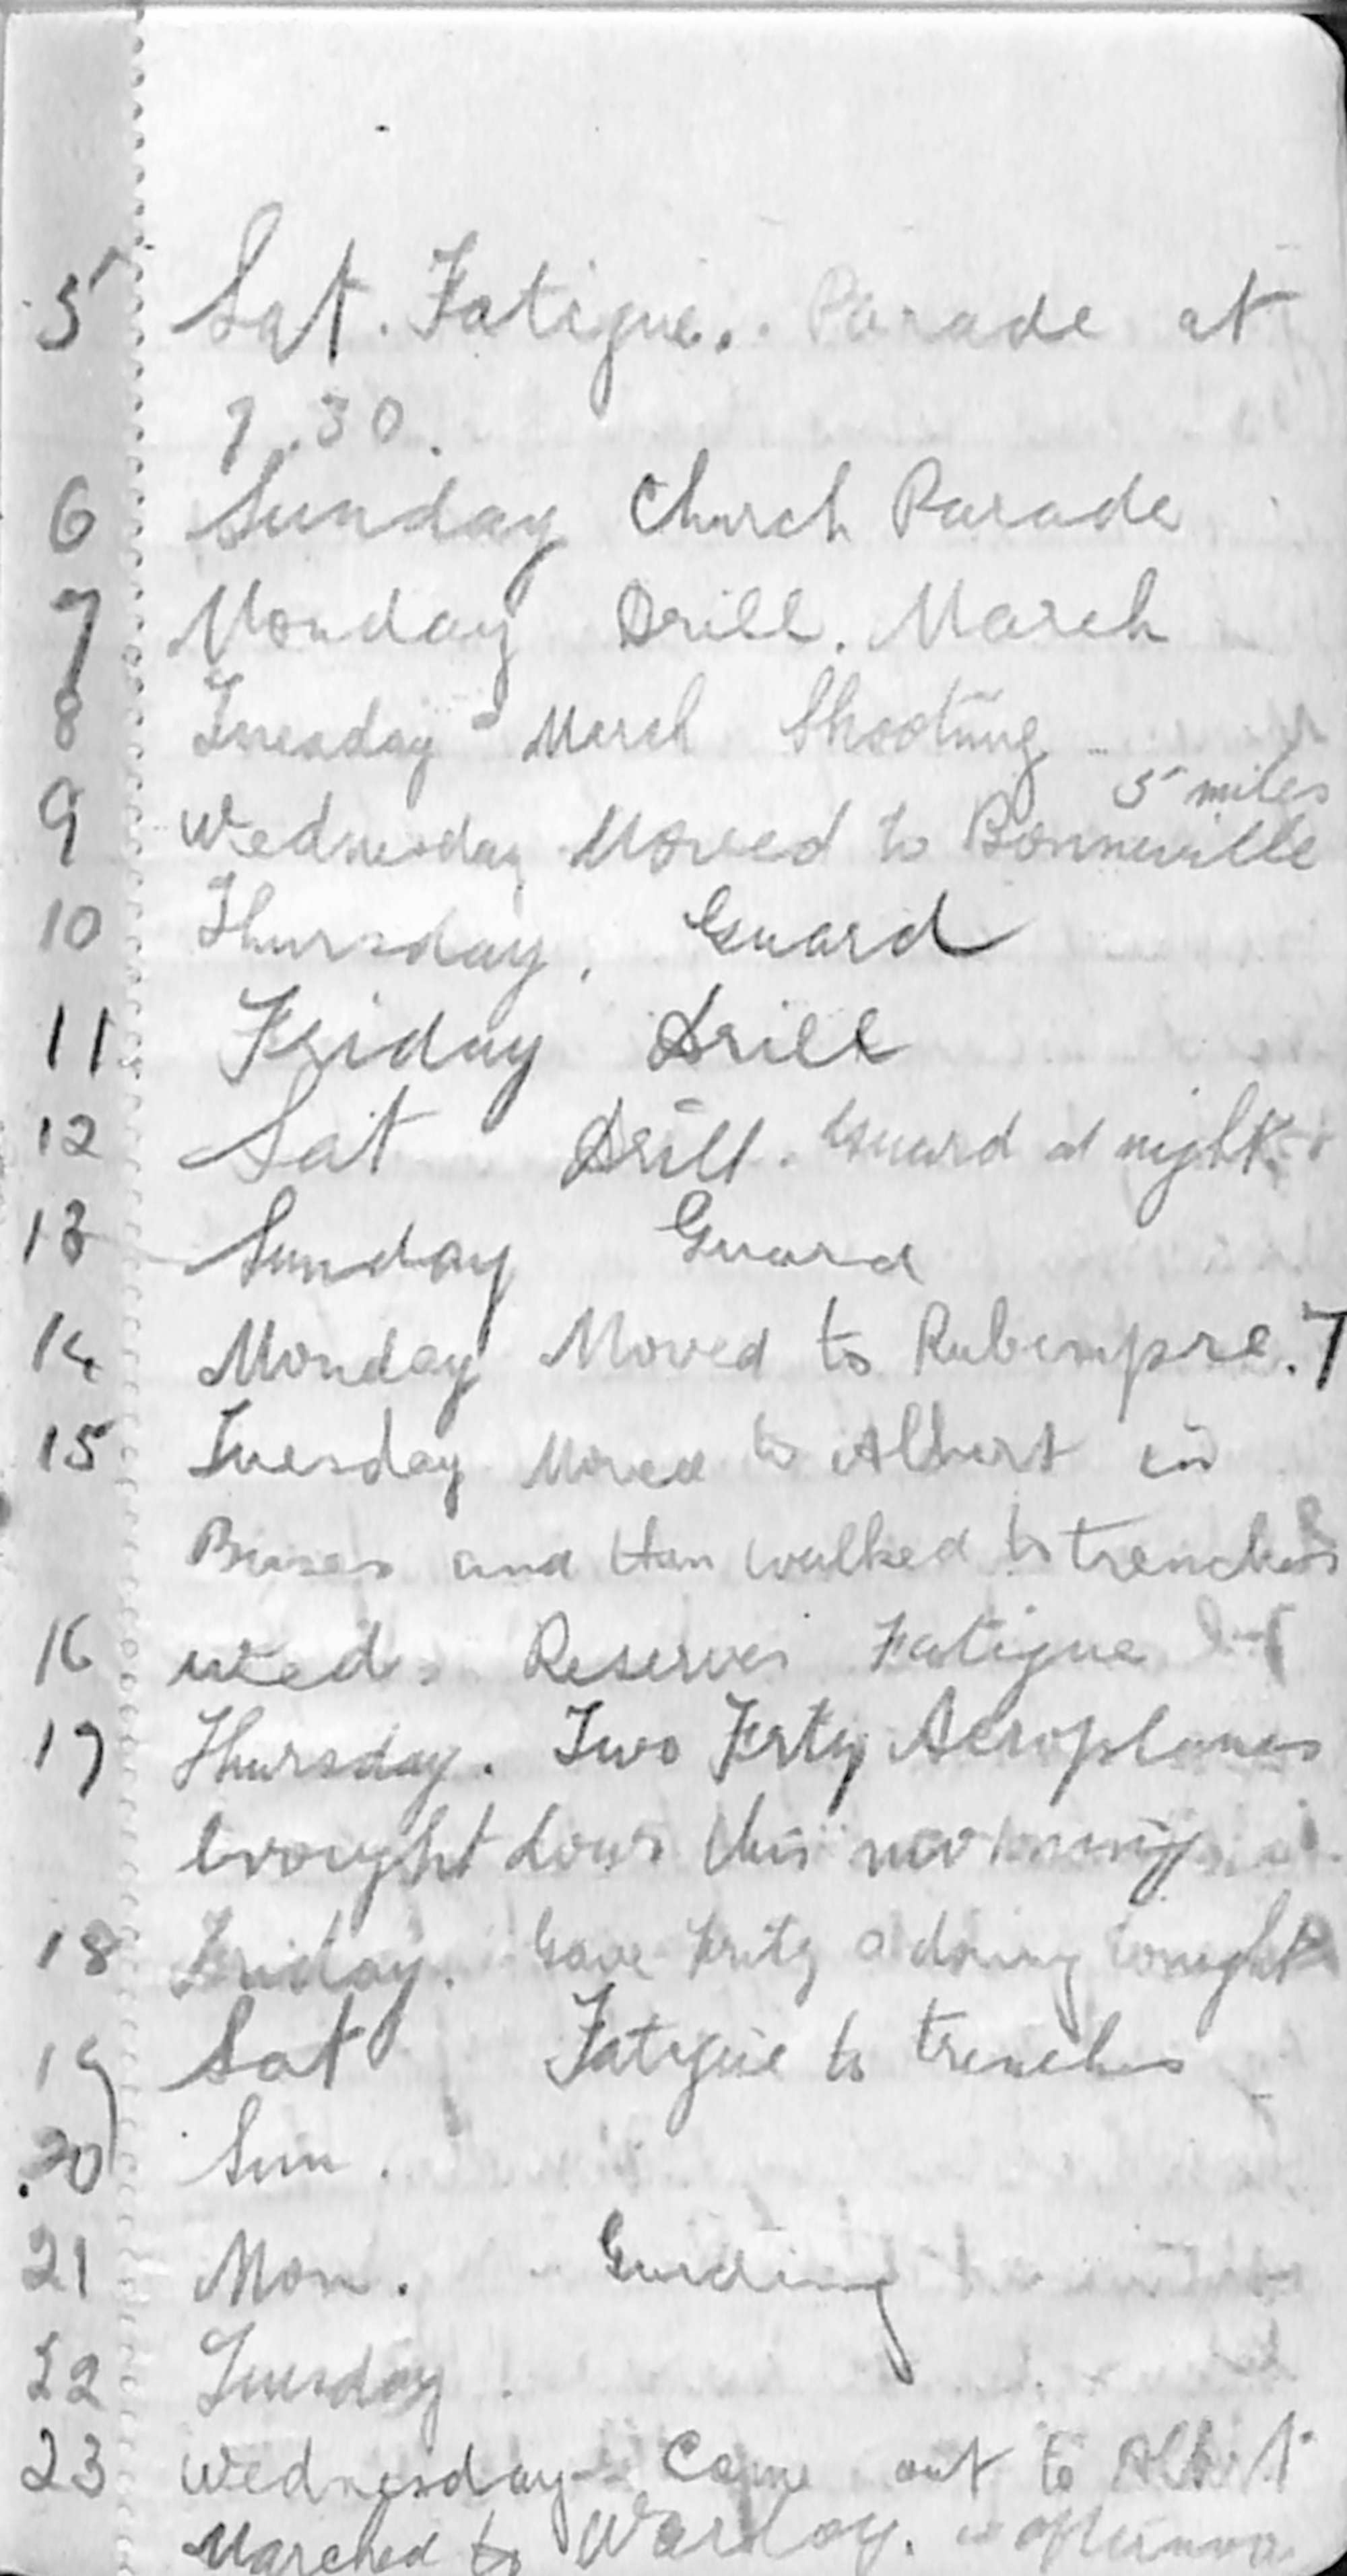 5 Sat. Fatigue. Parade at
7.30.
6 Sunday Church Parade
7 Monday Drill. March
8 Tuesday March Shooting
5 miles
9 Wednesday Moved to Bonneville
10 Thursday. Guard
11 Friday Drill
12 Sat Drill. Guard at night
13 Sunday Guard
14 Monday Moved to Rubempre. 7
15 Tuesday Moved to Albert in
Buses and then walked to trenches
16 Wed. Reserves Fatigue
17 Thursday. Two Fritz Aeroplanes
brought down this morning
18 Friday. Gave Fritz a doing tonight
19 Sat Fatigue to trenches
20 Sun.
21 Mon. Guiding
22 Tuesday
23 Wednesday Came out to Albert
Marched to Warloy.